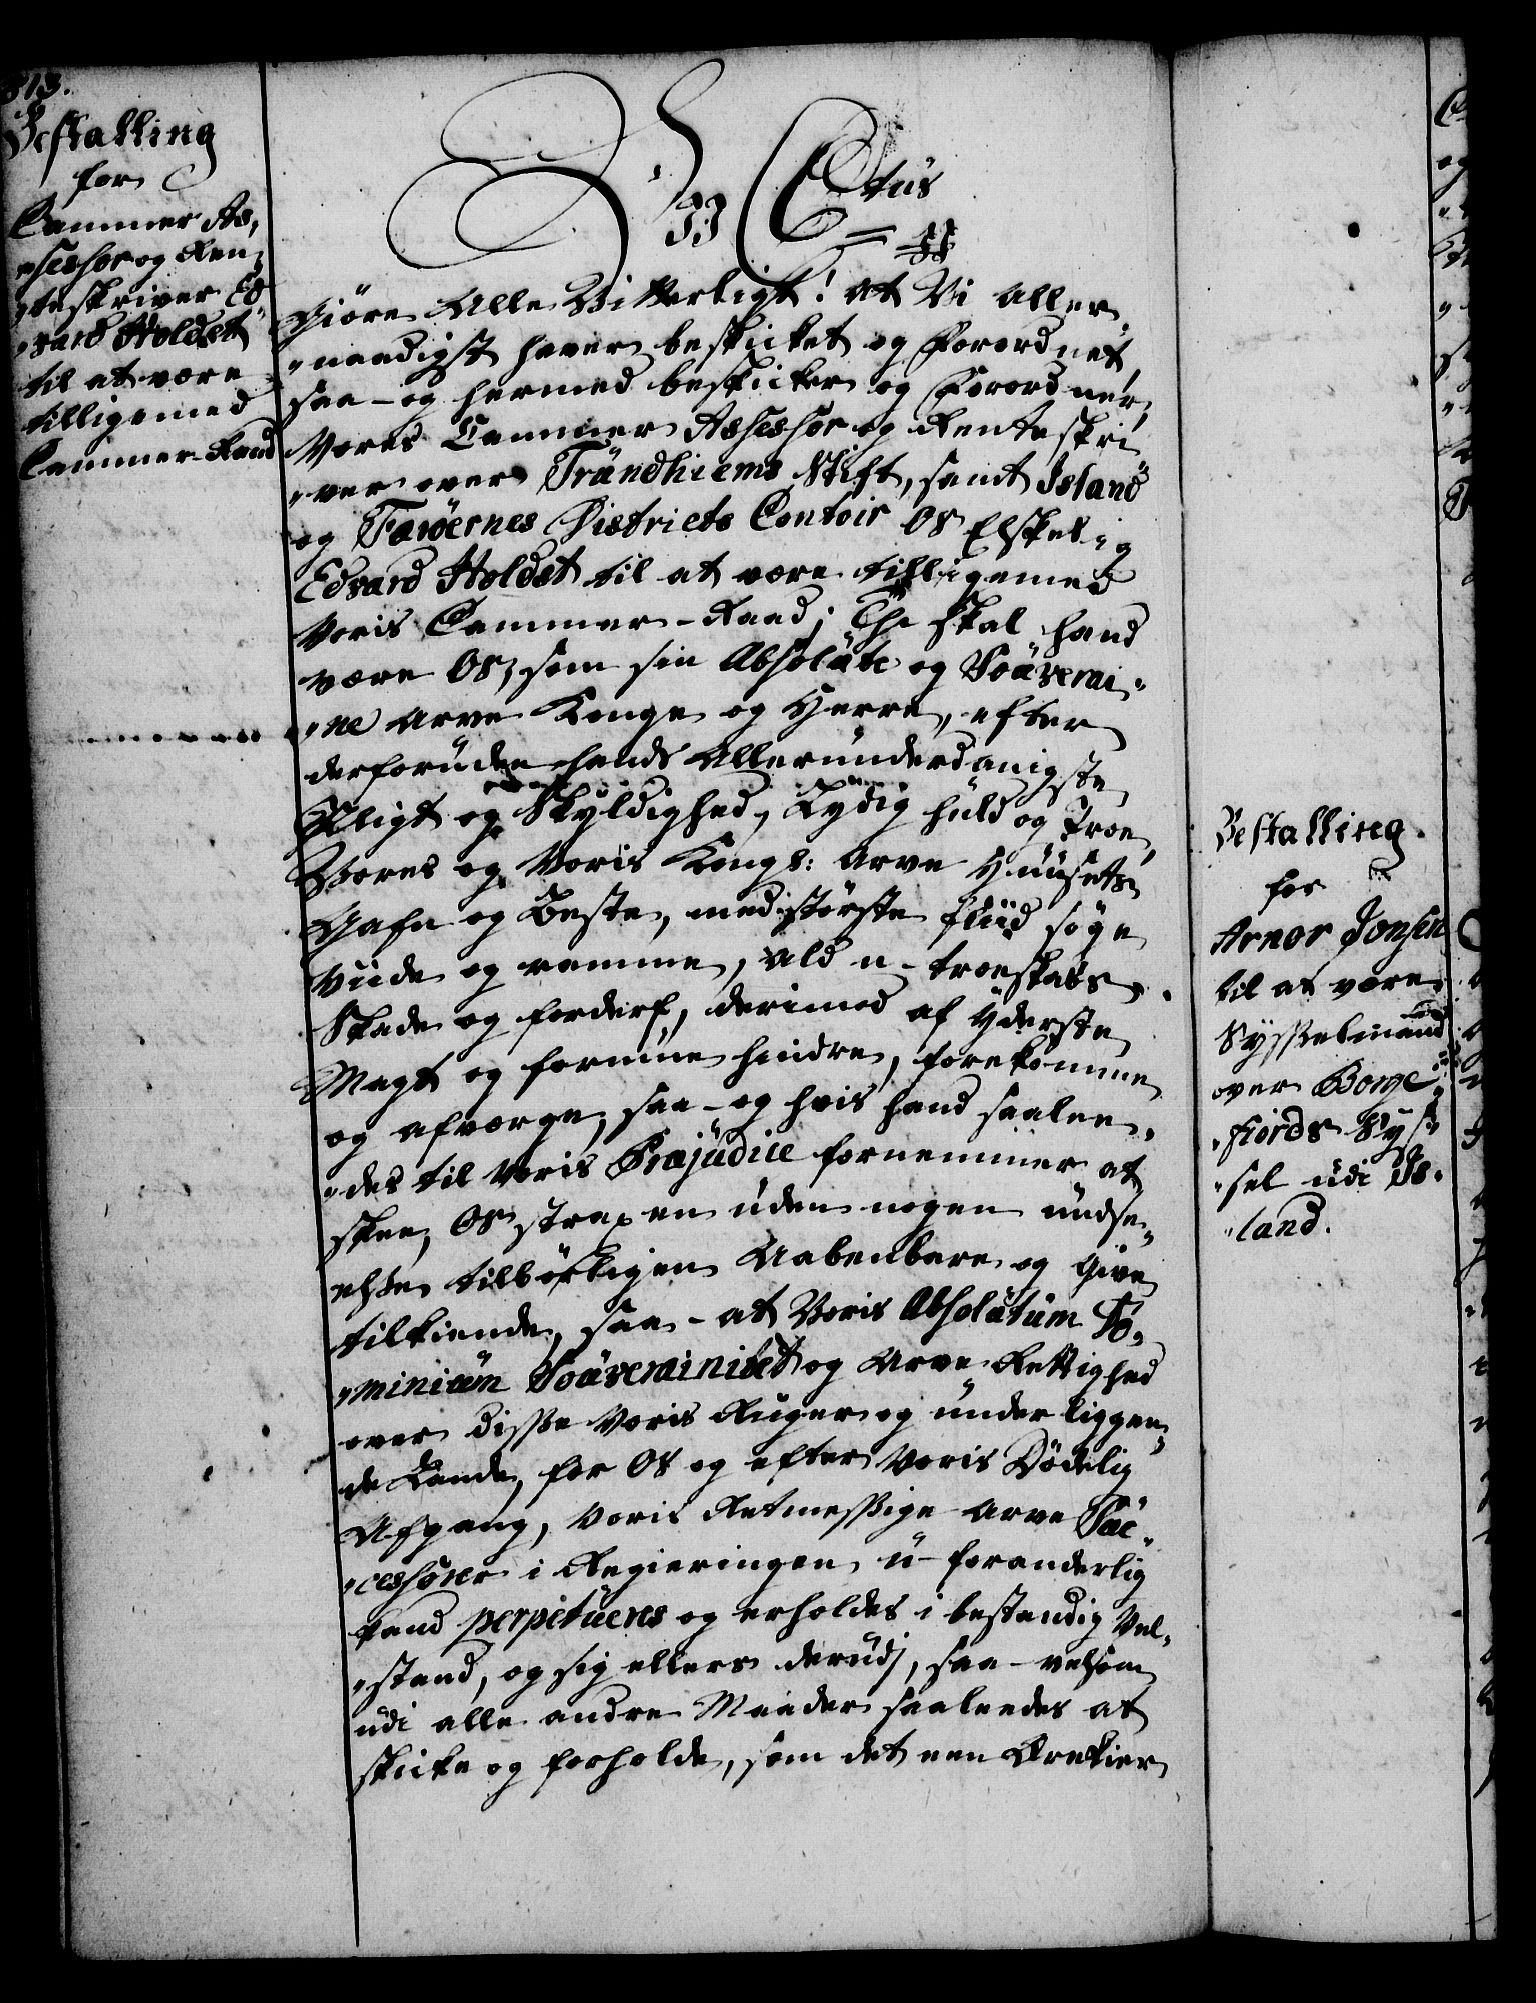 813.
Bestalling
for
Cammer As,
"sessor og Ren,
"teskriver Ed
"vard Holdst
til at være
tilligemed
Cammer-Raad
Vi C Etus
Giøre Alle Vitterligt! at Vi Aller,
"naadigst haver beskicket og Forordnet,
saa-og hermed beskicker og Forordner,
Vores Cammer Assessor og Renteskri
"ver over Trundhiems Stift, samt Island
og Færøernes Districts Contoir Os Elskel,,ig
Edvard Holdst til at være tilligemed
Voris Cammer-Raad; Thi skal hand
være Os, som sin Absolute og Souverai,
"ne Arve Konge og Herre, efter
derforuden hands Allerunderdanigste
Pligt og Skyldighed, Lydig huld og Troe,
Vores og Voris Kongl: Arve Huusets
Gafn og Beste, med største fliid søge
viide og ramme, Ald u-troeskabs
Skade og forderf, derimod af Yderste
Magt og formue hindre, forekomme
og afværge, saa-og hvis hand saalee,
"des til Voris Præjudice fornemmer at
skee, Os straxen uden nogen undse,
elsse tilbørligen Aabenbare og Give
tilkiende, saa-at Voris Absolutum Do,
"minium Souverainitet og Arve-Rettighed
over disse Voris Riiger og underliggen,
de Lande, for Os og efter Voris Dødelig
Afgang, Voris Retmessige Arve Suc
"cessorer i Regieringen u-foranderlig
kand perpetueres og erholdes i bestandig Vel,
"stand, og sig ellers derudj, saa-velsom
udi alle andre Maader saaleedes at
skicke og forholde, som det een Oprectier
Bestalling.
for
Arnor Jonsen
til at være
Sysselmand
over Borge,
"fiords Sys,
"sel udi Is,
"land.